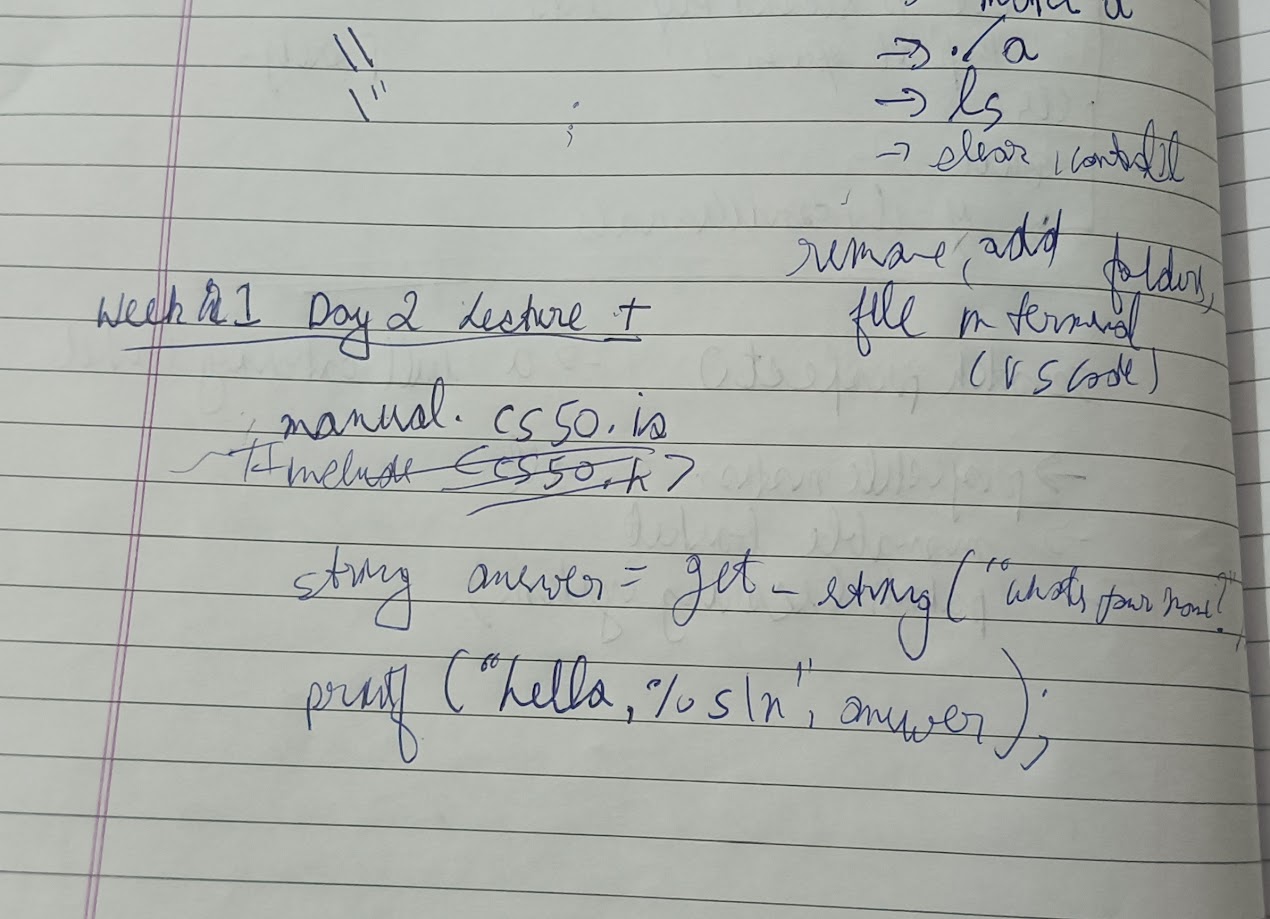 make a
\\
→ ./a
\"
→ ls
;
→ clear, control l
remove, add folders,
file in terminal
(VS Code)
Week 1 Day 2 Lecture +
manual. cs50.io
#include <cs50.h>
string answer = get_string("whats your name?"
printf ("hello, %s\n", answer);